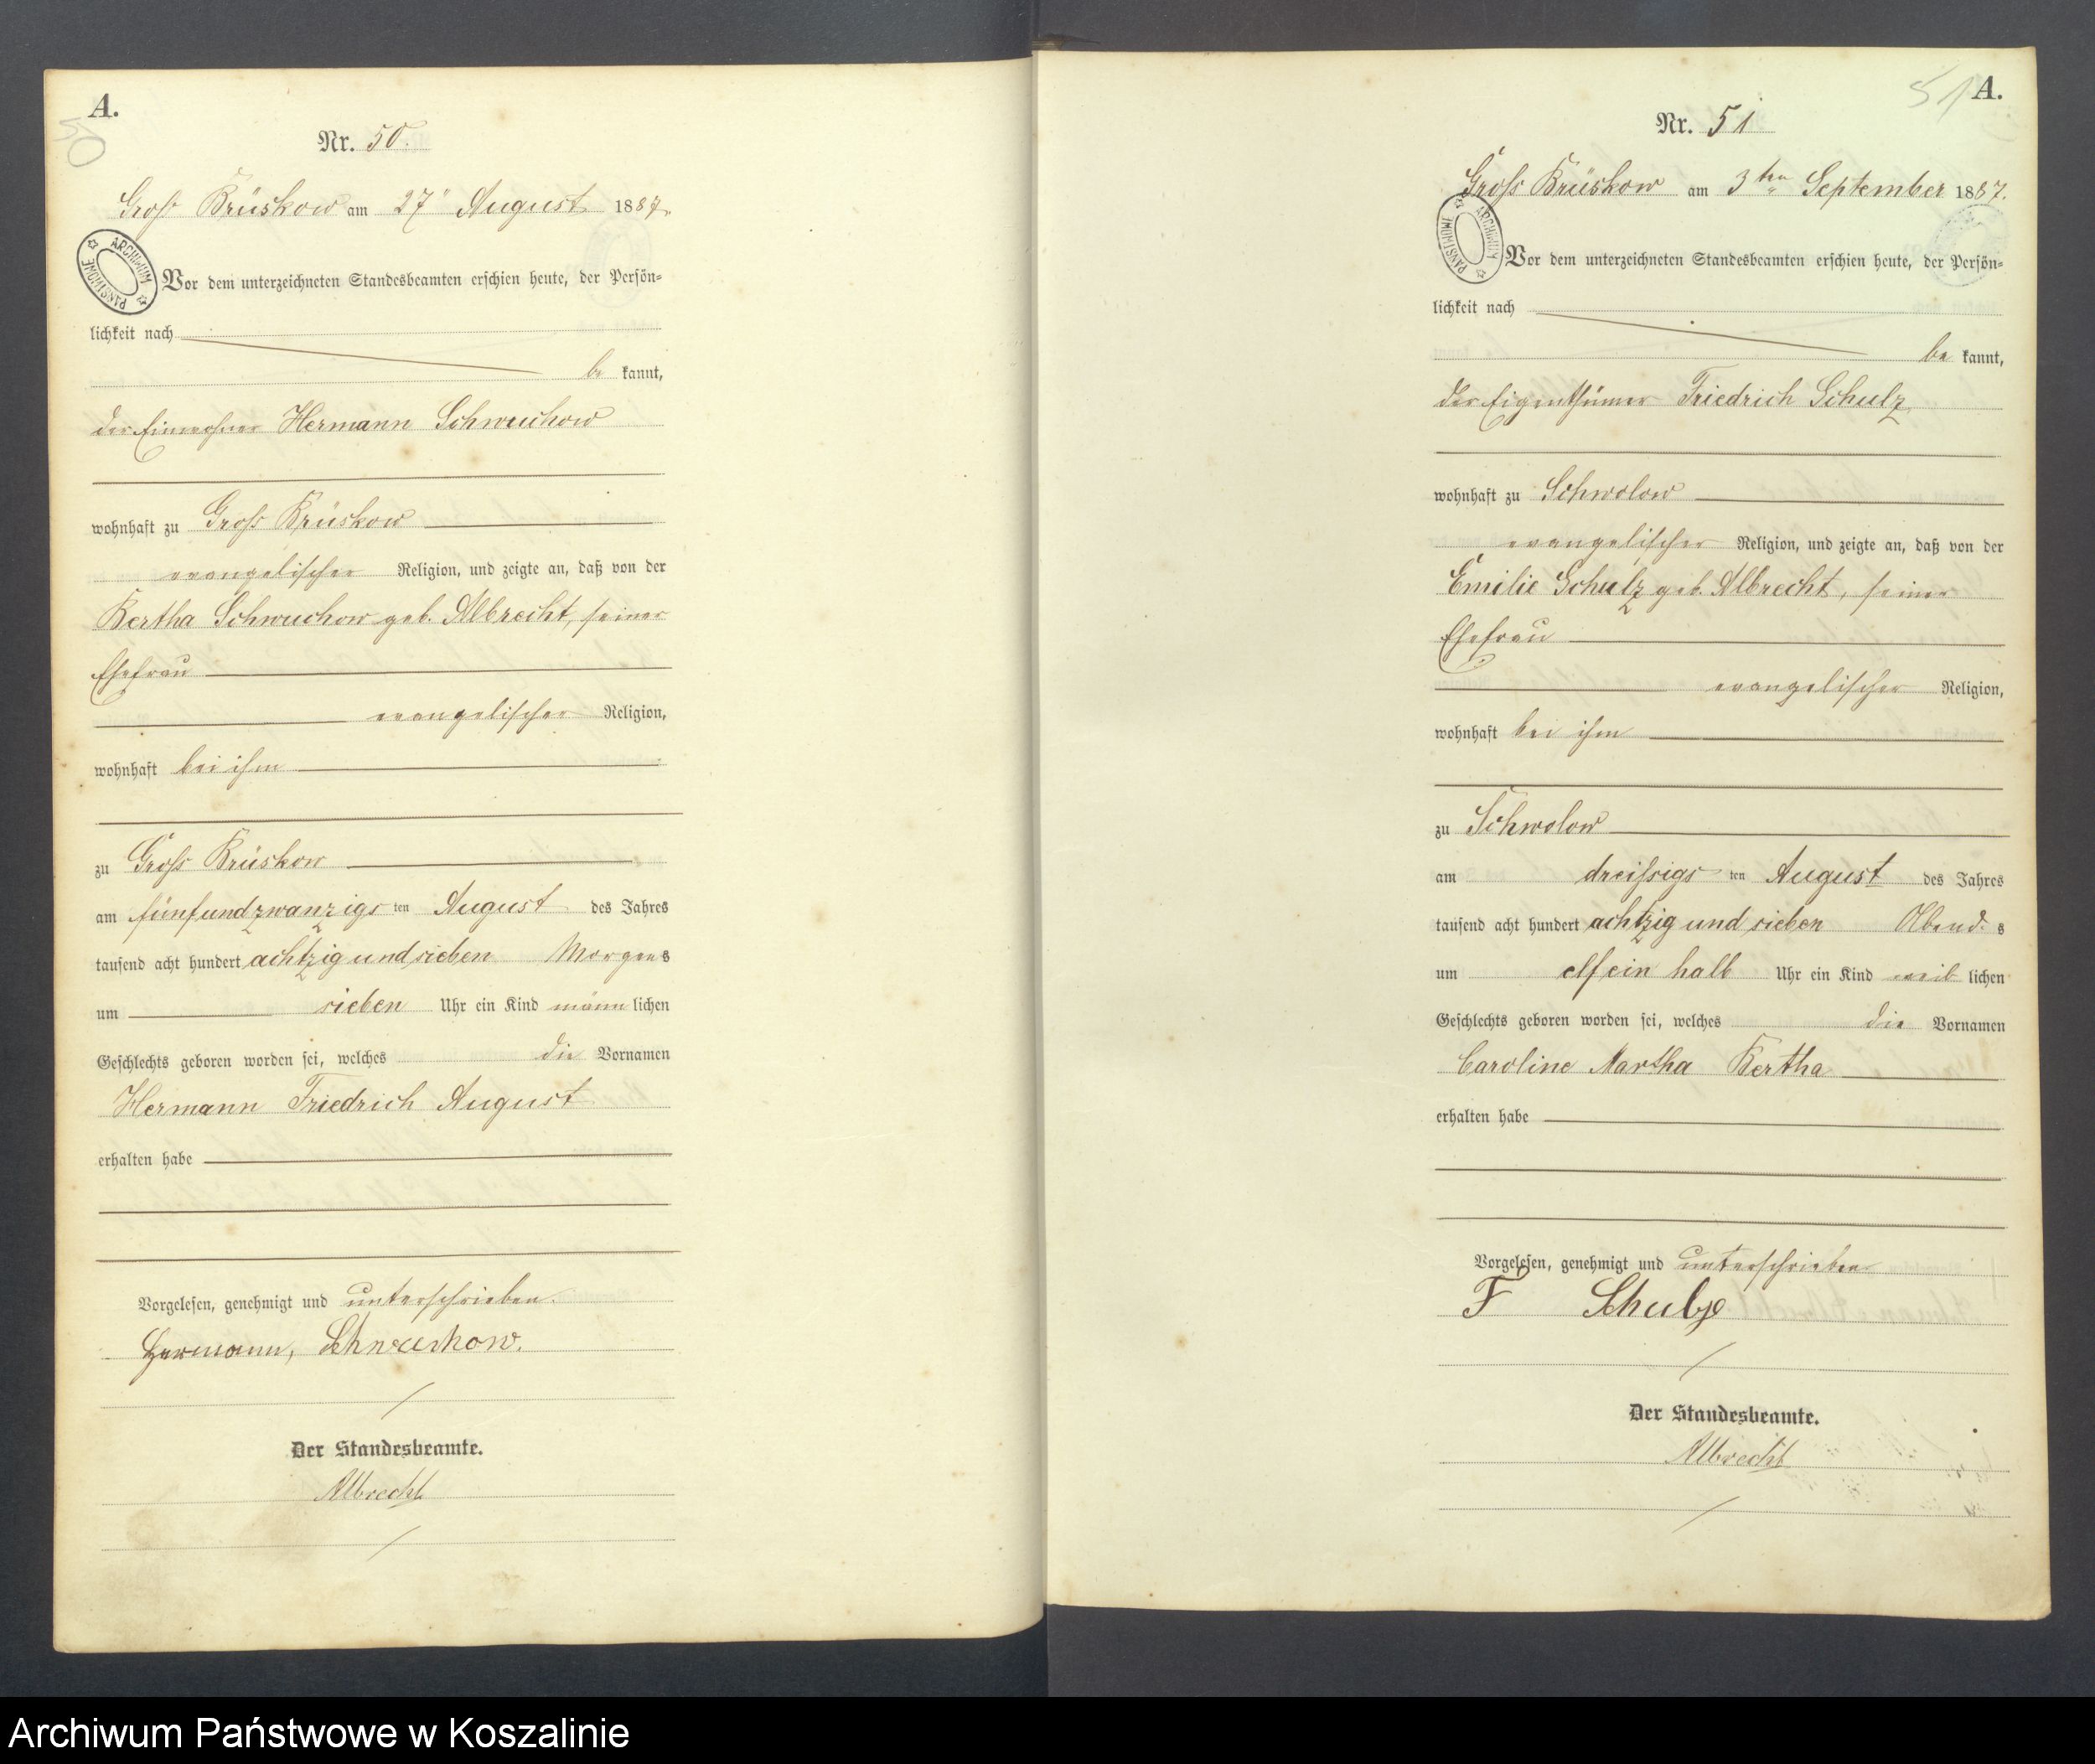 A.
50
Nr. 50.
Gross Brüskow am 27" August 1887.
ARCHIWUM PAŃSTWOWE
Vor dem unterzeichneten Standesbeamten erschien heute, der Persön=
lichkeit nach
be kannt,
der Einwohner Hermann Schwuchow
wohnhaft zu Gross Brüskow
evangelischer Religion, und zeigte an, daß von der
Bertha Schwuchow geb. Albrecht, seiner
Ehefrau
evangelischer Religion,
wohnhaft bei ihm
zu Gross Brüskow
am fünfundzwanzigs ten August des Jahres
tausend acht hundert achtzig und sieben Morgens
um sieben Uhr ein Kind männ lichen
Geschlechts geboren worden sei, welches die Vornamen
Hermann Friedrich August
erhalten habe
Vorgelesen, genehmigt und unterschrieben.
Hermann, Schwuchow.
Der Standesbeamte.
Albrecht
51 A.
Nr. 51
Gross Brüskow am 3ten September 1887.
ARCHIWUM PAŃSTWOWE
Vor dem unterzeichneten Standesbeamten erschien heute, der Persön=
lichkeit nach
be kannt,
der Eigenthümer Friedrich Schulz
wohnhaft zu Schwolow
evangelischer Religion, und zeigte an, daß von der
Emilie Schulz geb. Albrecht, seiner
Ehefrau
evangelischer Religion,
wohnhaft bei ihm
zu Schwolow
am dreissigs ten August des Jahres
tausend acht hundert achtzig und sieben Abend s
um elf ein halb Uhr ein Kind weib lichen
Geschlechts geboren worden sei, welches die Vornamen
Caroline Martha Bertha
erhalten habe
Vorgelesen, genehmigt und unterschrieben
F Schulz
Der Standesbeamte.
Albrecht
Archiwum Państwowe w Koszalinie